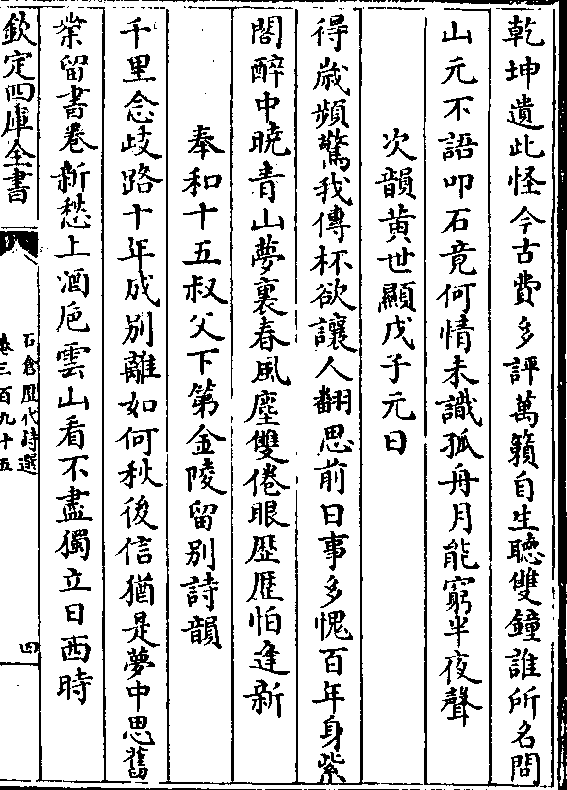 乾坤遺此怪今古費多評萬籟自生聽雙鐘誰所名問
山元不語叩石竟何情未識孤舟月能窮半夜聲
次韻黄世顯戊子元日
得歲頻驚我傳杯欲讓人翻思前日事多愧百年身紫
閣醉中曉青山夢裏春風塵雙倦眼歴歴怕逢新
奉和十五叔父下第金陵留别詩韻
千里念歧路十年成别離如何秋後信猶是夢中思舊
業留書卷新愁上酒巵雲山看不盡獨立日西時
欽定四庫全書
石倉歴代詩選
卷三百九十五
四